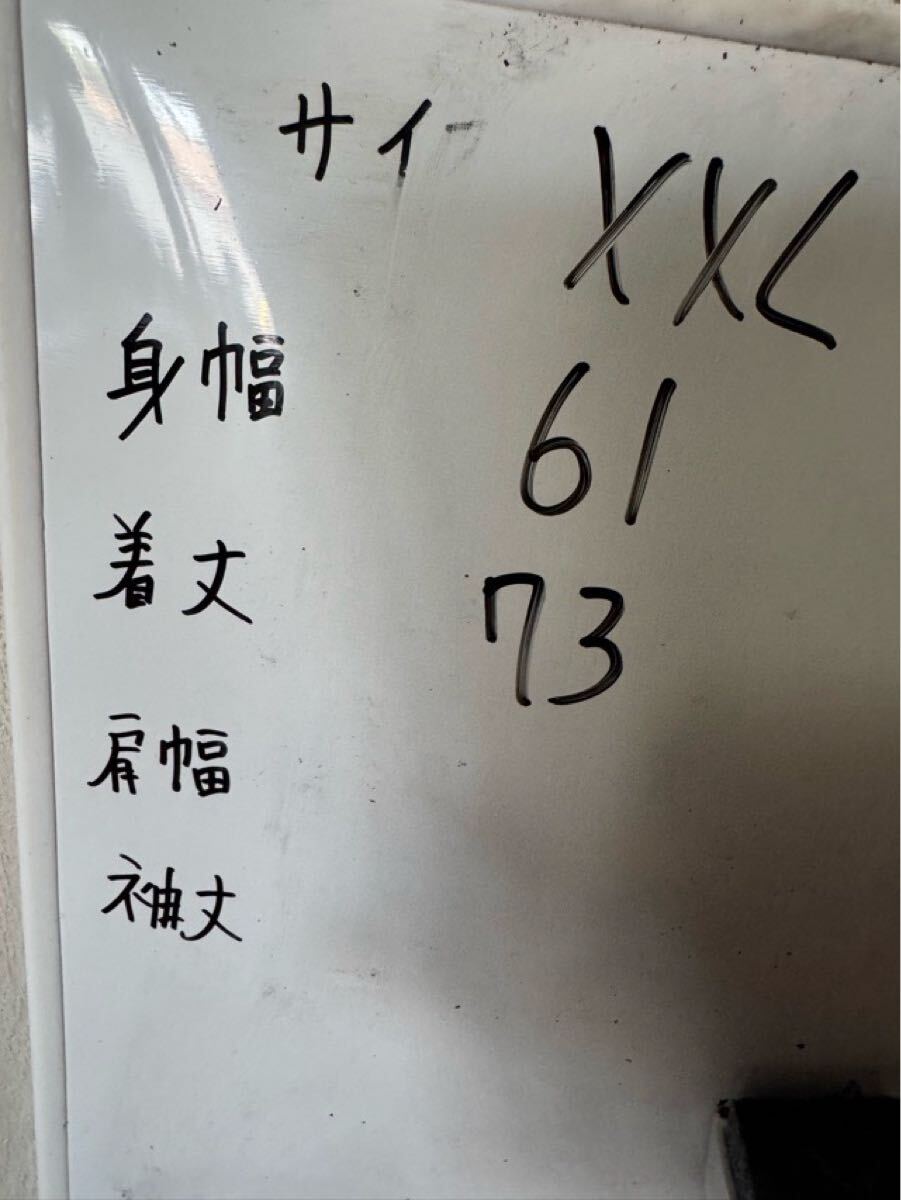 サイ XXL
身幅 61
着丈 73
肩幅
袖丈